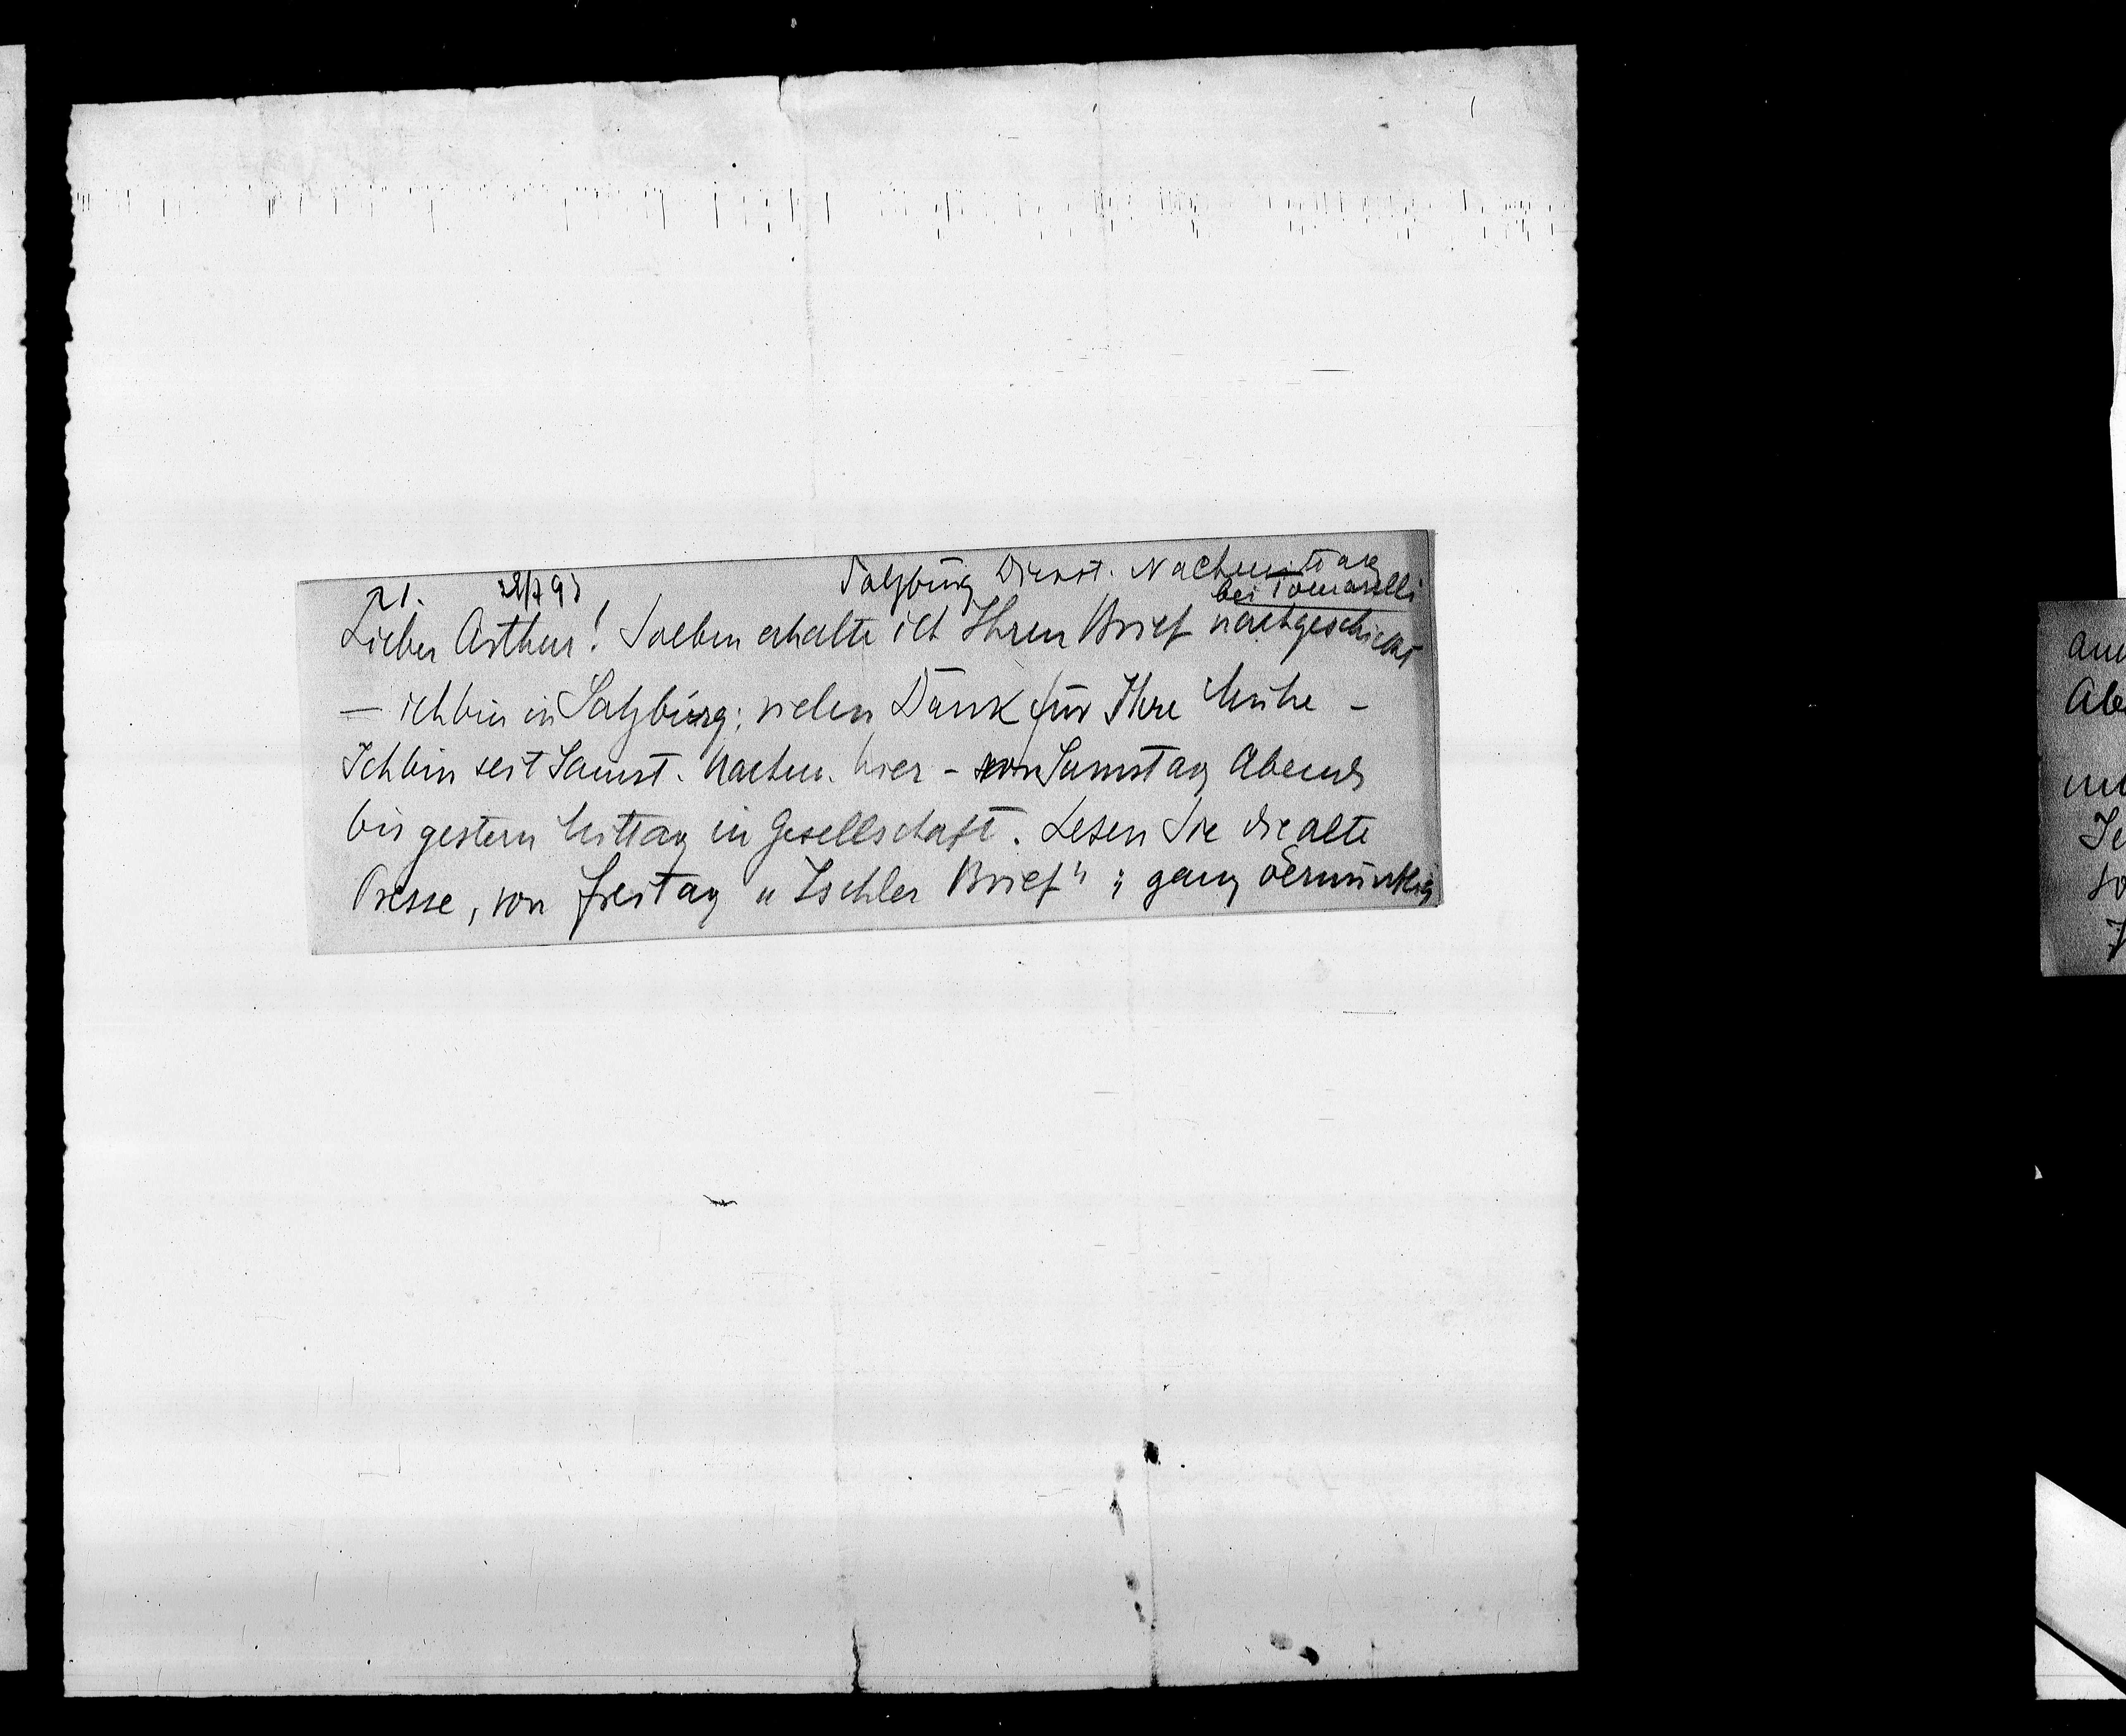 Salzburg Dienst. Nachmittag
bei Tomaselli
21.
Lieber Arthur! Soeben erhalte ich Ihren Brief nachgeschickt
— ich bin in Salzburg; vielen Dank für Ihre Mühe –
Ich bin seit Samst. Nachm. hier – von Samstag Abends
bis gestern Mittag in Gesellschaft. Lesen Sie die alte
Presse, von Freitag „Ischler Brief“; ganz